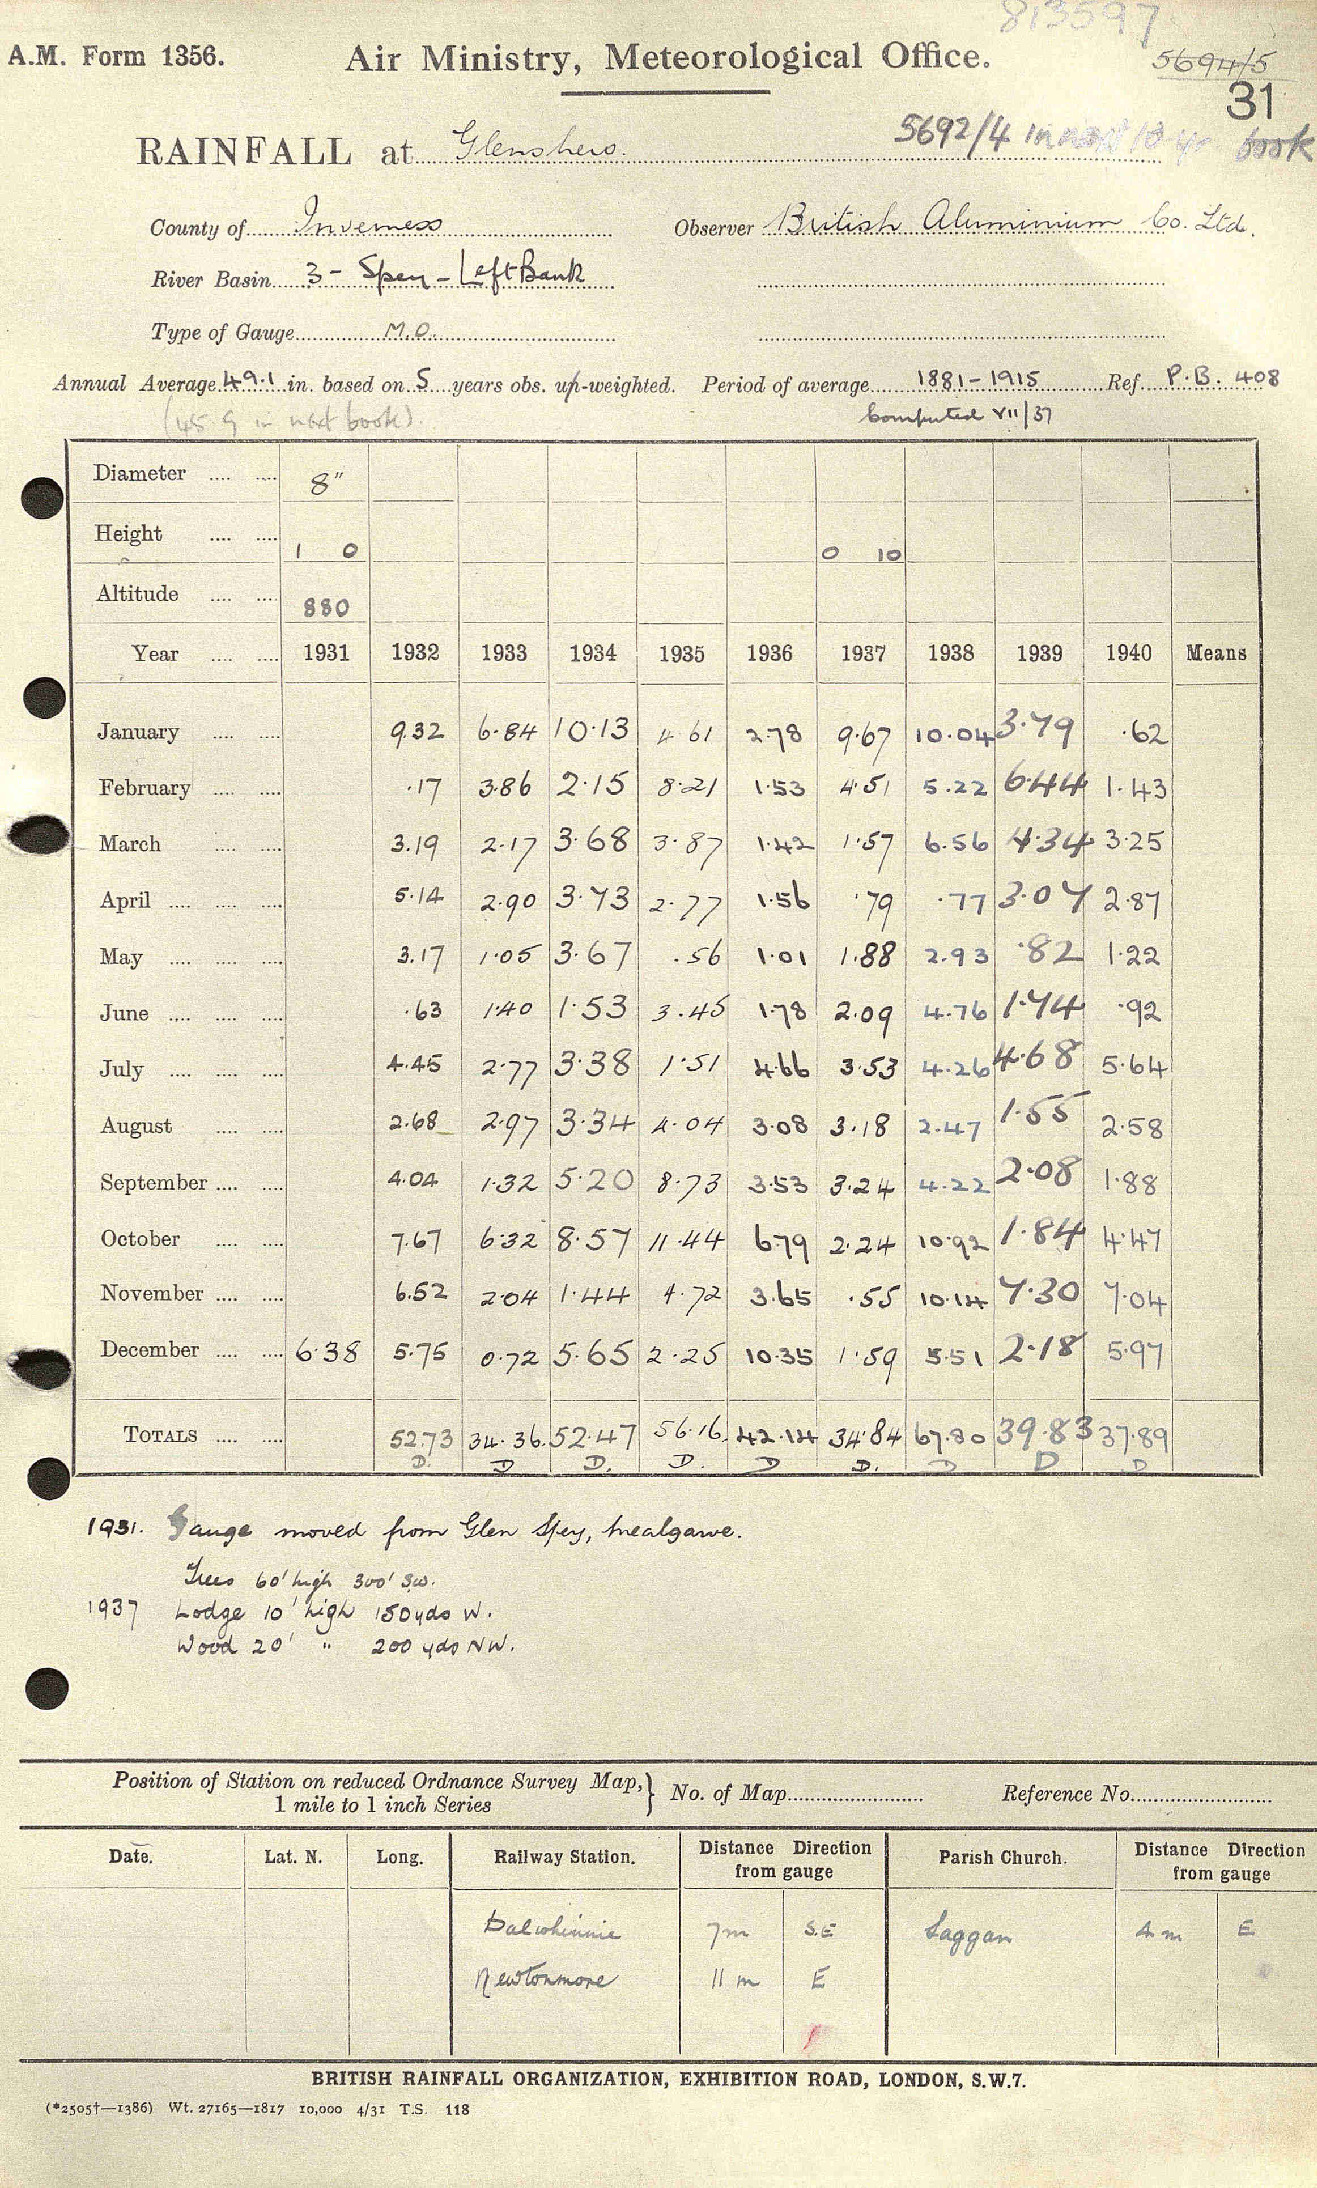 813597
A.M. Form 1356. Air Ministry, Meteorological Office. 5694/5
31
RAINFALL at Glenshero. 5692/4 in next 10 yr book
County of Inverness Observer British Aluminium Co. Ltd.
River Basin 3 - Spey - Left Bank
Type of Gauge M.O.
Annual Average 49.1 in. based on 5 years obs. un-weighted. Period of average 1881-1915 Ref. P.B. 408
(45.9 in next book). Computed VII/37
Diameter 8"
Height 1 0 0 10
Altitude 880
Year 1931 1932 1933 1934 1935 1936 1937 1938 1939 1940 Means
January 9.32 6.84 10.13 4.61 2.78 9.67 10.04 3.79 .62
February .17 3.86 2.15 8.21 1.53 4.51 5.22 6.44 1.43
March 3.19 2.17 3.68 3.87 1.42 1.57 6.56 4.34 3.25
April 5.14 2.90 3.73 2.77 1.56 .79 .77 3.07 2.87
May 3.17 1.05 3.67 .56 1.01 1.88 2.93 .82 1.22
June .63 1.40 1.53 3.45 1.78 2.09 4.76 1.74 .92
July 4.45 2.77 3.38 1.51 4.66 3.53 4.26 4.68 5.64
August 2.68 2.97 3.34 4.04 3.08 3.18 2.47 1.55 2.58
September 4.04 1.32 5.20 8.73 3.53 3.24 4.22 2.08 1.88
October 7.67 6.32 8.57 11.44 6.79 2.24 10.92 1.84 4.47
November 6.52 2.04 1.44 4.72 3.65 .55 10.14 7.30 7.04
December 6.38 5.75 0.72 5.65 2.25 10.35 1.59 5.51 2.18 5.97
TOTALS 52.73 34.36 52.47 56.16 42.14 34.84 67.80 39.83 37.89
D. D D. D. D D. D D D
1931. Gauge moved from Glen Spey, Mealgarve.
Trees 60' high 300' SW.
1937 Lodge 10' high 150yds W.
Wood 20' " 200 yds NW.
Position of Station on reduced Ordnance Survey Map, 1 mile to 1 inch Series } No. of Map Reference No.
Date. Lat. N. Long. Railway Station. Distance Direction from gauge Parish Church. Distance Direction from gauge
Dalwhinnie 7m S.E Laggan 4 m E
Newtonmore 11 m E
BRITISH RAINFALL ORGANIZATION, EXHIBITION ROAD, LONDON, S.W.7.
(*2505†—1386) Wt. 27165—1817 10,000 4/31 T.S. 118